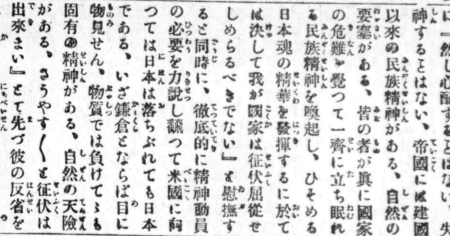 に一然し心醉するとはない、失
神するとはない、帝國には建國
以來の民族精神がある、自然の
要塞がある、皆の者が眞に國家
の危難を覺つて一齊に立ち眠れ
る民族精神を喚起し、ひそめる
日本魂の精華を發揮するに於て
は決して我が國家は征伏屈從せ
しめらるべきでない』と慰撫す
ると同時に、徹底的に精神動員
の必要を力說し飜つて米國に向
つては日本は落ちぶれても日本
である、いざ鎌倉とならば目に
物見せん、物質では負けてゝも
固有の精神がある、自然の天險
がある、さうやす〱と征伏は
出來まい』と先づ彼の反省を